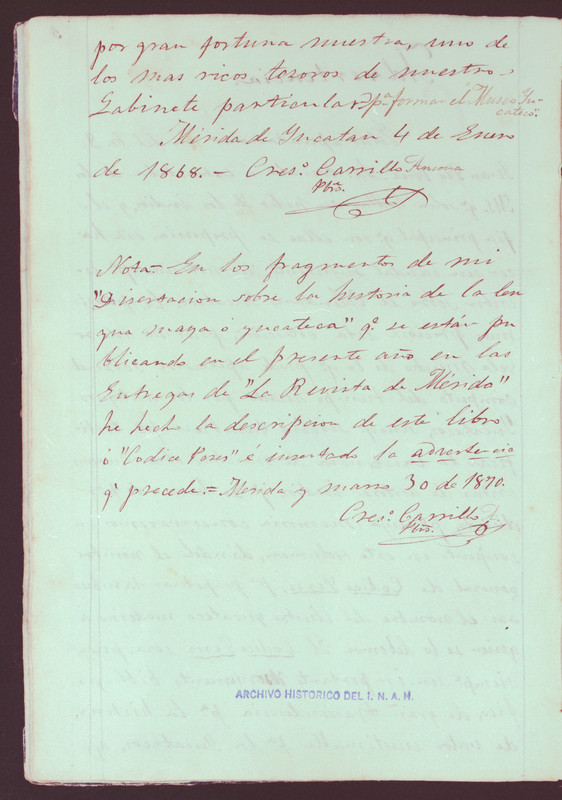 por gran fortuna nuestra, uno de
los mas ricos tesoros de nuestro
Gabinete particular, pª formar el Museo Yu-
cateco".
Mérida de Yucatan 4 de Enero
de 1868. - Cresº. Carrillo Ancona
Pbrò.
Nota = En los fragmentos de mi
"Disertacion sobre la historia de la len
gua maya ó yucateca" qº. se están pu
blicando en el presente año en las
Entregas de "La Revista de Mérida"
he hecho la descripcion de este libro
ó "Codice Perez" é insertado la advertencia
qº precede. = Mérida y marzo 30 de 1870.
Cresº. Carrillo A.
Pbrò.
ARCHIVO HISTORICO DEL I. N. A. H.